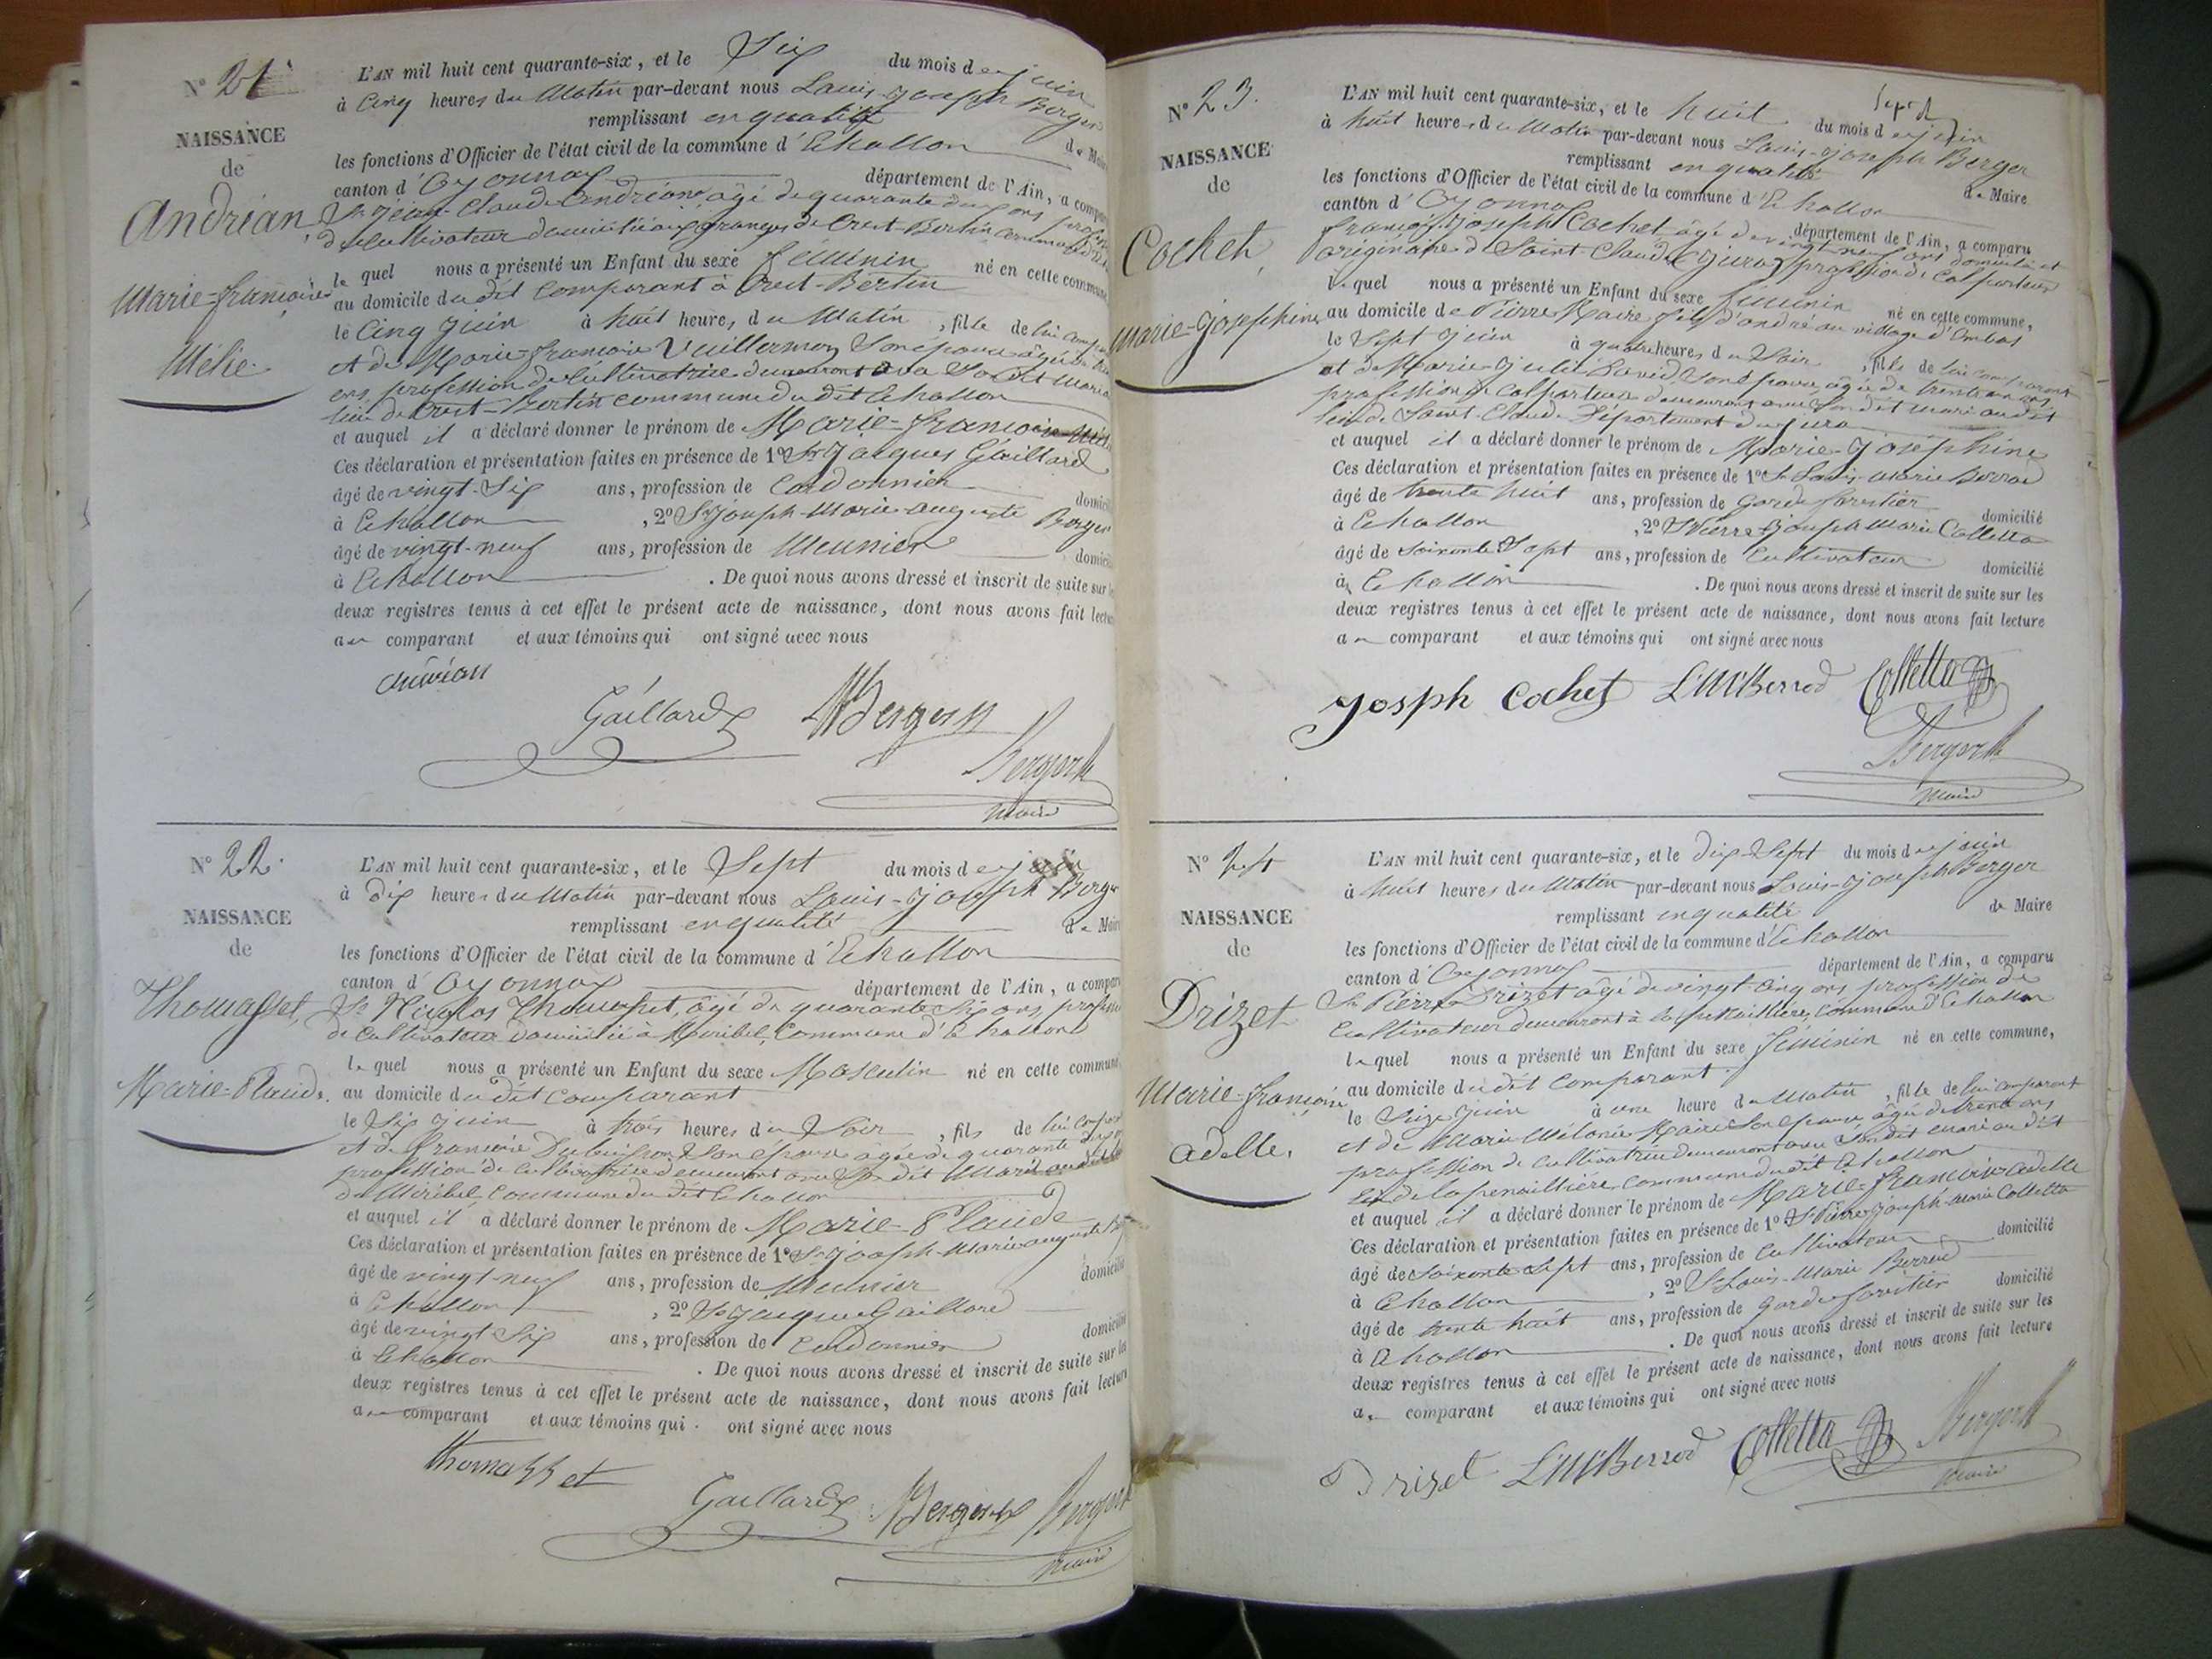 N° 21
NAISSANCE
de
Andréan,
Marie-françoise
Mélie.
L'AN mil huit cent quarante-six, et le Six du mois de juin
à Cinq heures du Matin par-devant nous Louis-joseph Berger
remplissant en qualité de Maire
les fonctions d'Officier de l'état civil de la commune d'Echallon
canton d'Oyonnax département de l'Ain, a comparu
Sr jean-Claude Andréan, âgé de quarante deux ans, profession
de Cultivateur domicilié aux granges de Crest-Bertin commune
le quel nous a présenté un Enfant du sexe féminin né en cette commune
au domicile du dit Comparant à Crest-Bertin
le Cinq juin à huit heures du Matin, fille de lui comparant
et de Marie-françoise Vuillermoz Son épouse âgée de
ans, profession de Cultivatrice demeurant avec Son dit mari au
lieu de Crest-Bertin commune du dit Echallon
et auquel il a déclaré donner le prénom de Marie-françoise Mélie
Ces déclaration et présentation faites en présence de 1° Sr Jacques Gaillard
âgé de vingt-Six ans, profession de Cordonnier domicilié
à Echallon, 2° Sr joseph-Marie-auguste Berger
âgé de vingt-neuf ans, profession de Meunier domicilié
à Echallon. De quoi nous avons dressé et inscrit de suite sur les
deux registres tenus à cet effet le présent acte de naissance, dont nous avons fait lecture
au comparant et aux témoins qui ont signé avec nous
andréan
Gaillard Berger
Berger
Maire
N° 22.
NAISSANCE
de
Thomasset,
Marie-Claude.
L'AN mil huit cent quarante-six, et le Sept du mois de juin
à dix heures du Matin par-devant nous Louis-joseph Berger
remplissant en qualité de Maire
les fonctions d'Officier de l'état civil de la commune d'Echallon
canton d'Oyonnax département de l'Ain, a comparu
Sr Nicolas Thomasset, âgé de quarante Six ans, profession
de Cultivateur domicilié à Miribel, Commune d'Echallon
le quel nous a présenté un Enfant du sexe Masculin né en cette commune
au domicile du dit Comparant
le Six juin à trois heures du Soir, fils de lui comparant
et de françoise Dubuisson Son épouse âgée de quarante
profession de cultivatrice demeurant avec Son dit Mari au dit lieu
de Miribel, commune du dit Echallon
et auquel il a déclaré donner le prénom de Marie-Claude
Ces déclaration et présentation faites en présence de 1° Sr joseph-Marie-auguste Berger
âgé de vingt-neuf ans, profession de Meunier domicilié
à Echallon, 2° Sr jacques Gaillard
âgé de vingt Six ans, profession de Cordonnier domicilié
à Echallon. De quoi nous avons dressé et inscrit de suite sur les
deux registres tenus à cet effet le présent acte de naissance, dont nous avons fait lecture
au comparant et aux témoins qui ont signé avec nous
thomasset
Gaillard Berger Berger
Maire
N° 23.
NAISSANCE
de
Cochet,
Marie-joséphine
L'AN mil huit cent quarante-six, et le huit du mois de juin
à huit heures du Matin par-devant nous Louis-joseph Berger
remplissant en qualité de Maire
les fonctions d'Officier de l'état civil de la commune d'Echallon
canton d'Oyonnax département de l'Ain, a comparu
françois-joseph Cochet âgé de vingt neuf ans domicilié et
originaire de Saint-Claude (Jura) profession de Colporteur
le quel nous a présenté un Enfant du sexe féminin né en cette commune,
au domicile de Pierre Maire fils d'andré au village d'Embas
le Sept juin à quatre heures du Soir, fille de lui comparant
et de Marie-julie David, Son épouse, âgée de trente un ans
profession de Colporteuse demeurant avec Son dit mari au dit
lieu de Saint-Claude Département du jura
et auquel il a déclaré donner le prénom de Marie-joséphine
Ces déclaration et présentation faites en présence de 1° Sr Louis-Marie Berrod
âgé de trente huit ans, profession de Garde forestier domicilié
à Echallon, 2° Sr Pierre-joseph Marie Colletta
âgé de soixante Sept ans, profession de Cultivateur domicilié
à Echallon. De quoi nous avons dressé et inscrit de suite sur les
deux registres tenus à cet effet le présent acte de naissance, dont nous avons fait lecture
au comparant et aux témoins qui ont signé avec nous
Josph Cochet L M Berrod Colletta
Berger
Maire
N° 24
NAISSANCE
de
Drizet
Marie-françoise
adelle.
L'AN mil huit cent quarante-six, et le dix-Sept du mois de juin
à huit heures du Matin par-devant nous Louis-joseph Berger
remplissant en qualité de Maire
les fonctions d'Officier de l'état civil de la commune d'Echallon
canton d'Oyonnax département de l'Ain, a comparu
Sr Pierre Drizet âgé de vingt-Cinq ans profession de
Cultivateur demeurant à la penaillière, Commune d'Echallon
le quel nous a présenté un Enfant du sexe féminin né en cette commune,
au domicile du dit Comparant.
le Seize juin à une heure du Matin, fille de lui comparant
et de Marie Mélanie Maire Son épouse âgée de trente ans
profession de Cultivatrice demeurant avec Son dit mari au dit
lieu de la penaillière, commune du dit Echallon
et auquel il a déclaré donner le prénom de Marie-françoise adelle
Ces déclaration et présentation faites en présence de 1° Sr Pierre-joseph-marie Colletta
âgé de Soixante Sept ans, profession de Cultivateur domicilié
à Echallon, 2° Sr Louis-Marie Berrod
âgé de trente huit ans, profession de Garde forestier domicilié
à Echallon. De quoi nous avons dressé et inscrit de suite sur les
deux registres tenus à cet effet le présent acte de naissance, dont nous avons fait lecture
au comparant et aux témoins qui ont signé avec nous
Drizet L M Berrod Colletta Berger
Maire